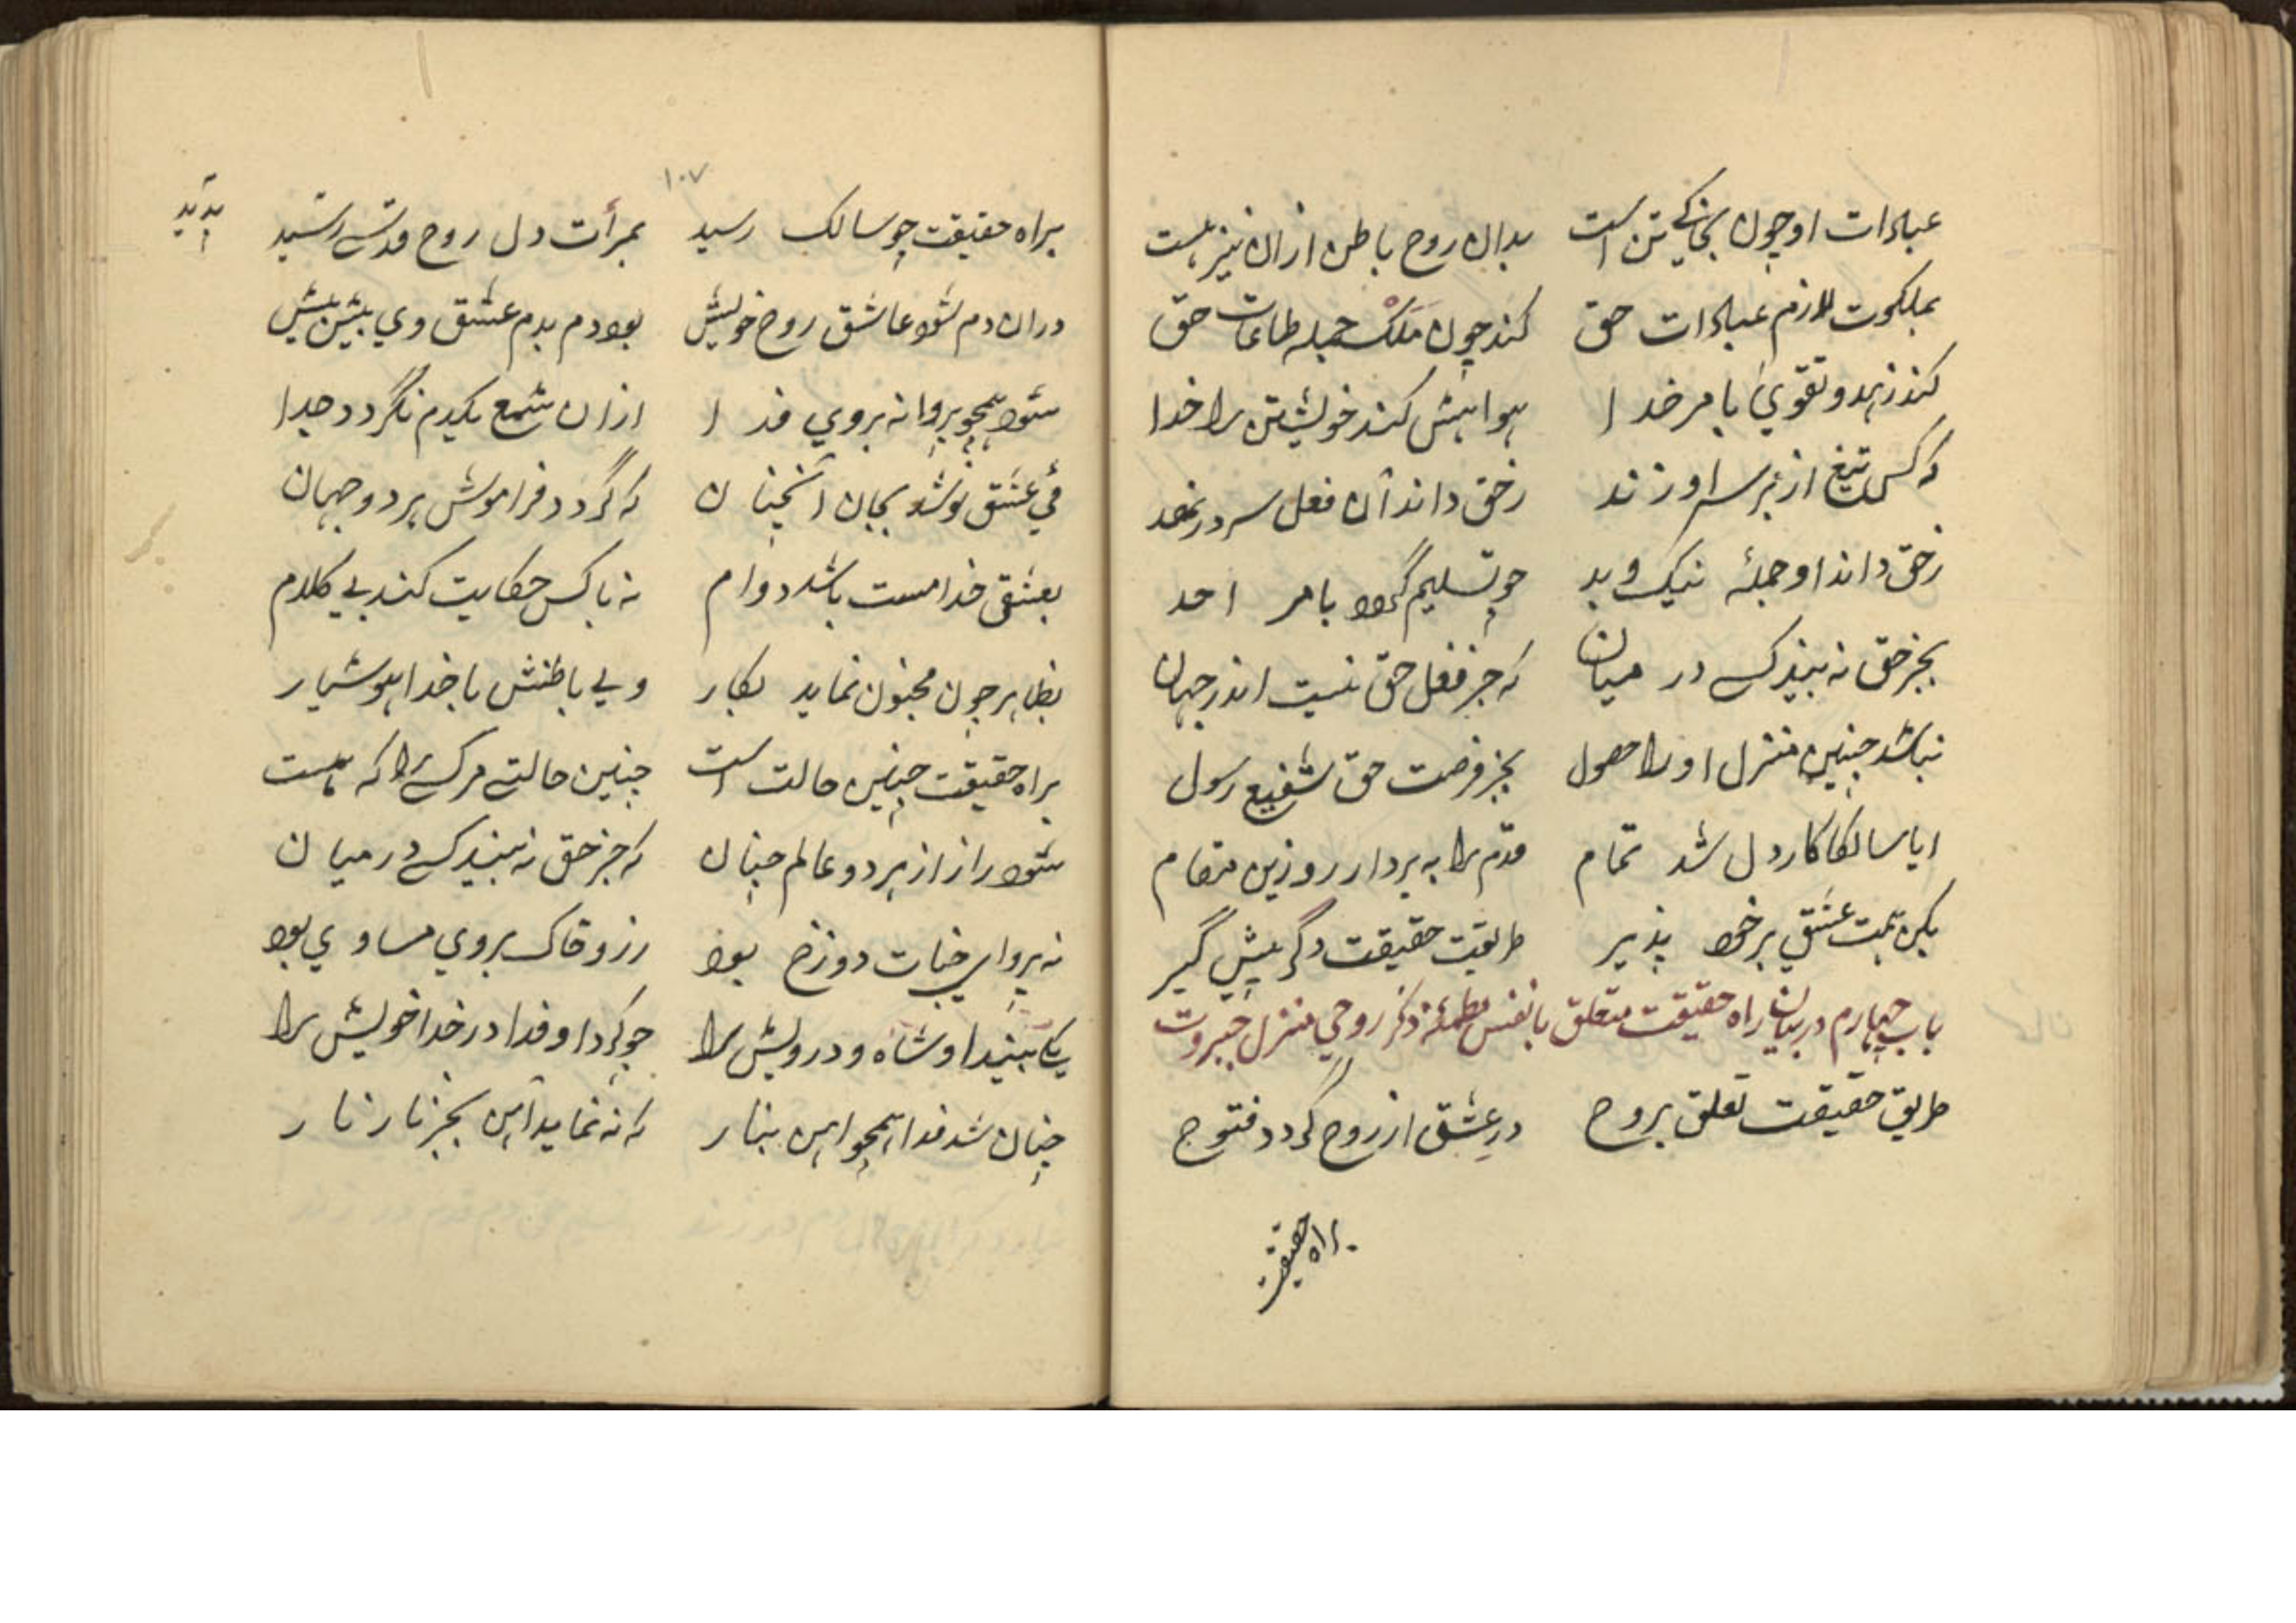 عبادات او چون بجانکے تن است بدان روح باطن ازان نیز ہست
بملکوت لازم عبادات حق کند چون مَلَک جمله طاعات حق
کند زہد و تقویٰ بامر خدا ہواہش کند خویشتن را خدا
که کس تیغ از بر سر او زند زحق داند آن فعل سر در نهد
زحق داند او جملهٔ نیک و بد چو تسلیم گردد بامر احد
بجز حق نه بیند کسے در میان که جز فعل حق نیست اندر جہان
نباشد چنین منزل او را حصول بجز فرصت حق شفیع رسول
ایا سالکا کار دل شد تمام قدم را به بردار رو زین مقام
بکن ہمت عشق بر خود پذیر طریقت حقیقت دگر پیش گیر
باب چہارم در بیان راه حقیقت متعلق با نفس مطمئنه ذکر روحی منزل جبروت
طریق حقیقت تعلق بروح درِ عشق از روح گردد فتوح
براه حقیقت
۱۰۷
براه حقیقت چو سالک رسید بمرأت دل روح قدسے رسید
پدید
دران دم شود عاشق روح خویش بود دم بدم عشق وی بیش بیش
شود ہمچو پروانه بروی فدا ازان شمع یکدم نگردد جدا
مئے عشق نوشد بجان آنچنان که گردد فراموش ہر دو جہان
بعشق خدا مست باشد دوام نه با کس حکایت کند بے کلام
بظاہر چون مجنون نماید بکار ولے باطنش با خدا ہوشیار
براه حقیقت چنین حالت است چنین حالتے مر کسے را که ہست
شود راز از ہر دو عالم چنان که جز حق نه بیند کسے در میان
نه پروای جنات دوزخ بود زر و خاک بروی مساوی بود
یکے بیند او شاه و درویش را چو کرد او فدا در خدا خویش را
چنان شد فدا ہمچو آہن بنار که نه نماید آہن بجز نار نار